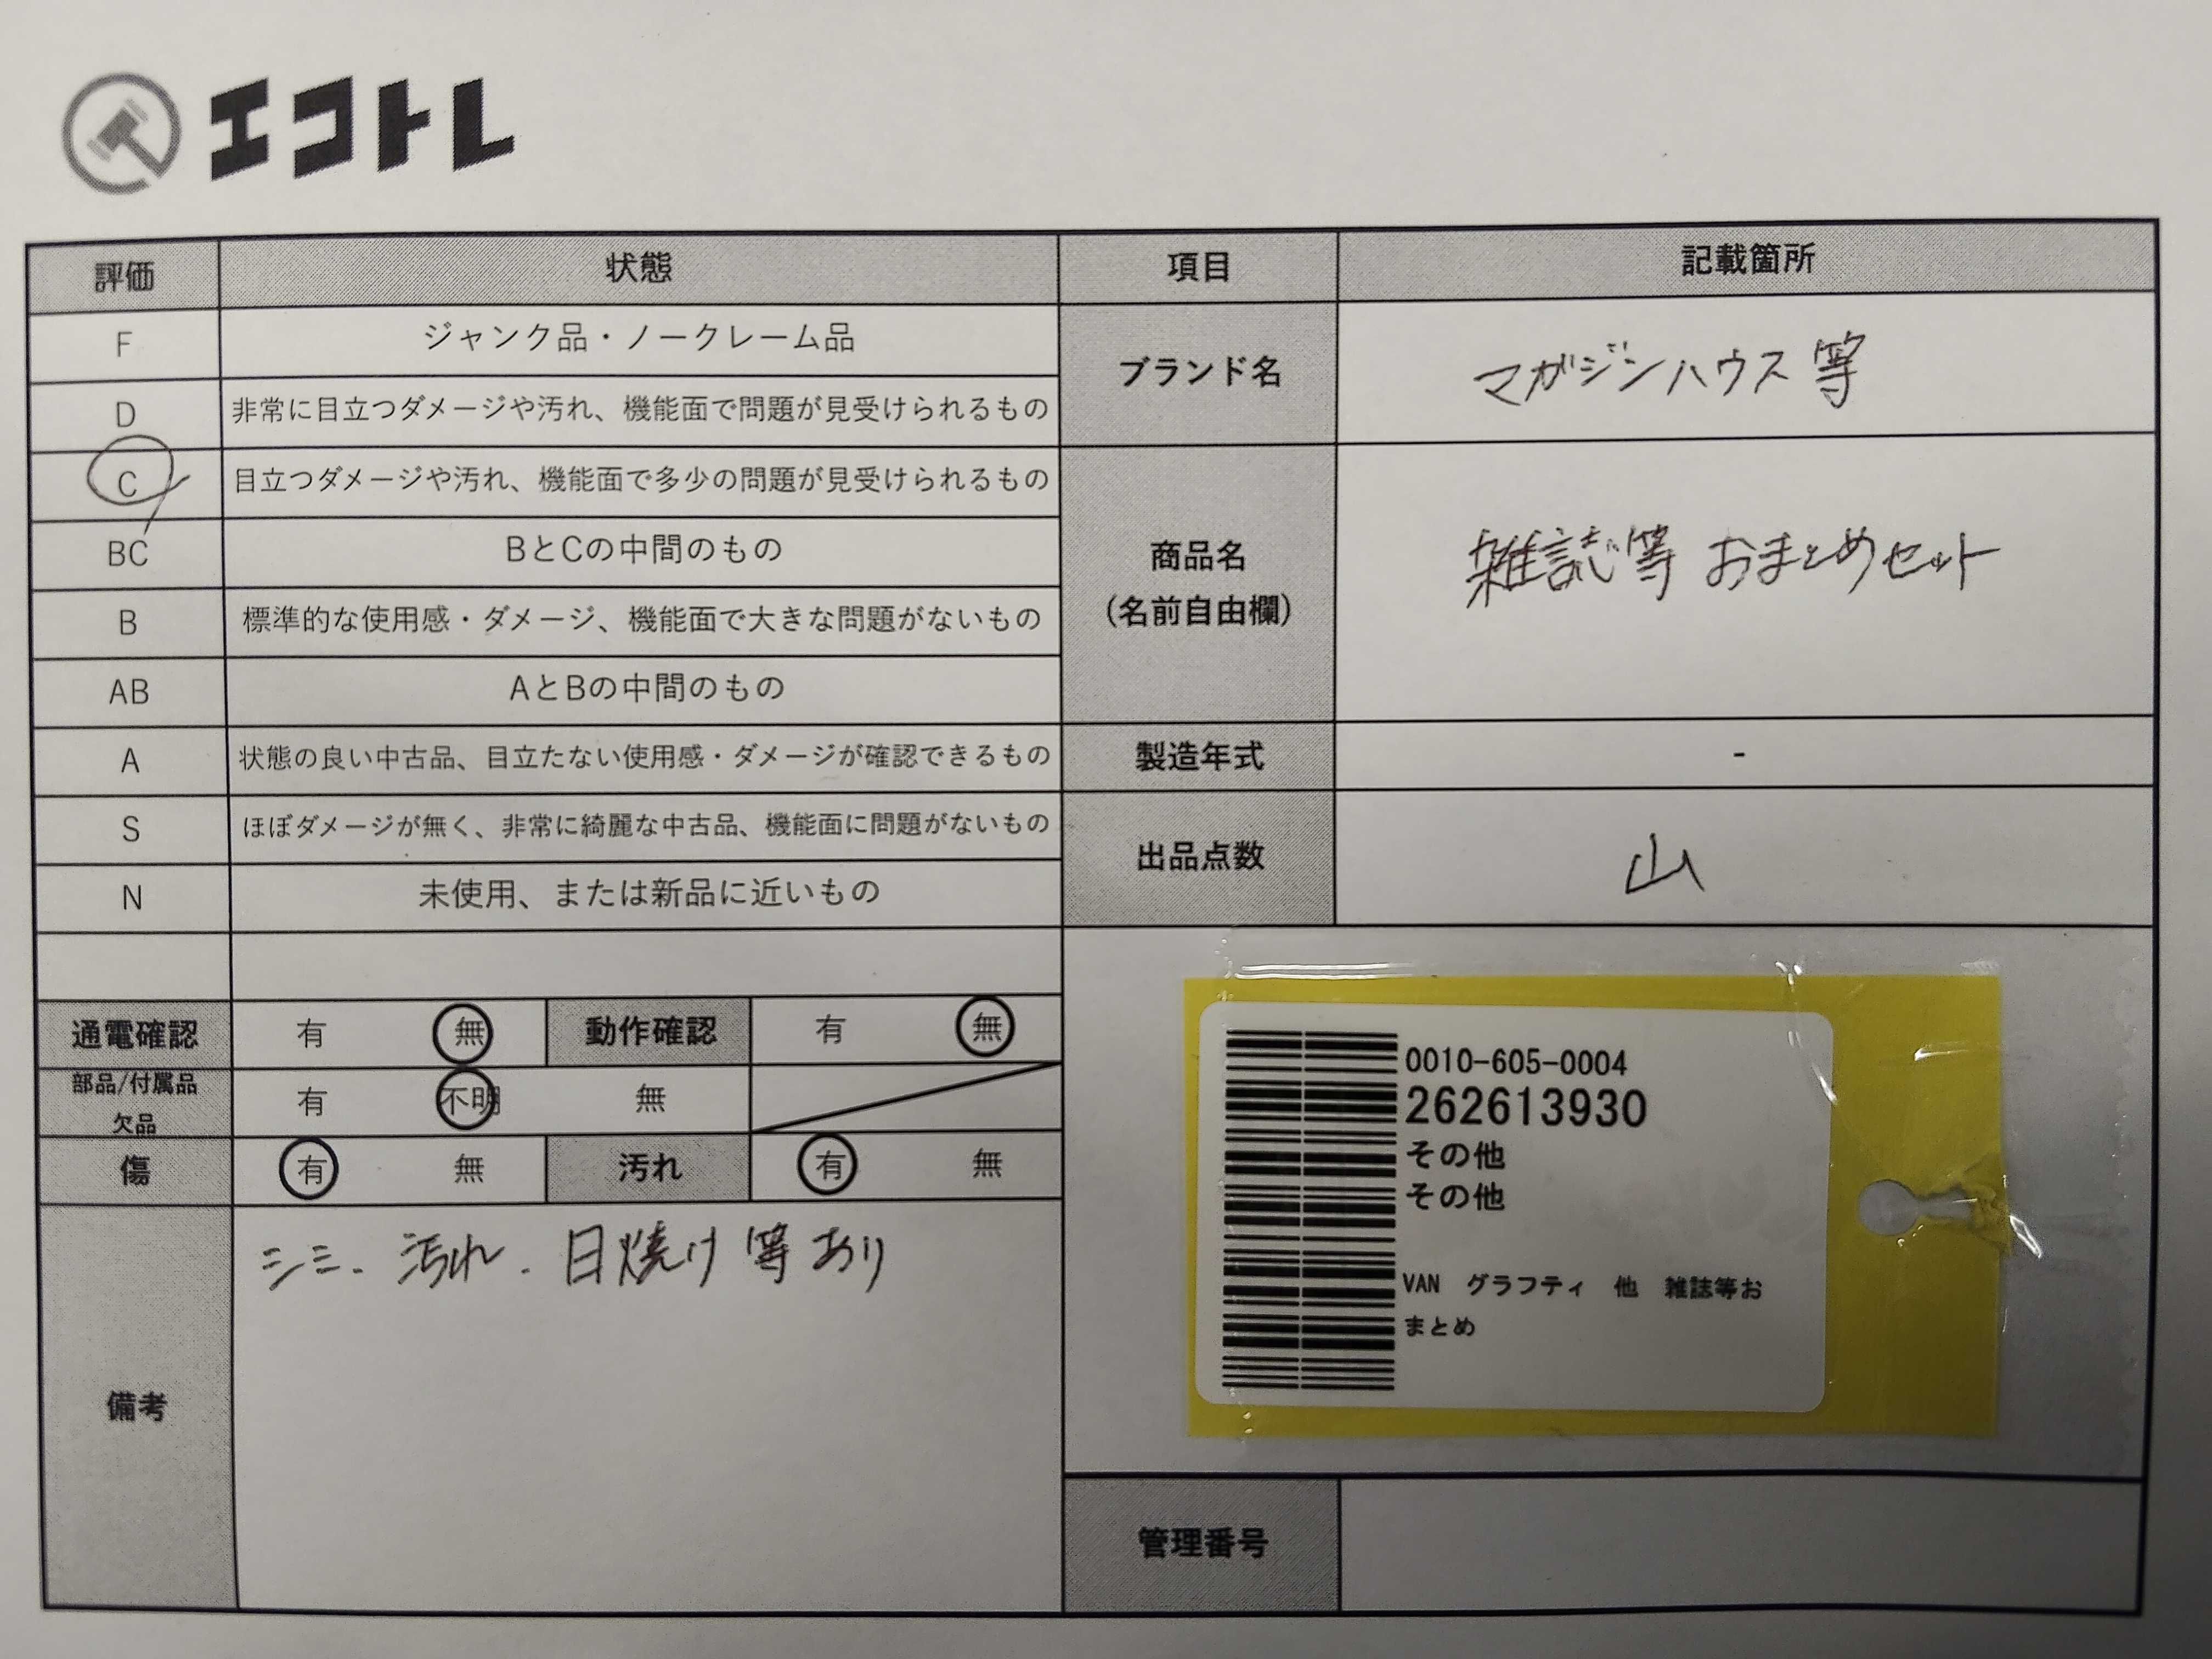 エコトレ
評価 状態 項目 記載箇所
F ジャンク品・ノークレーム品
D 非常に目立つダメージや汚れ、機能面で問題が見受けられるもの
C 目立つダメージや汚れ、機能面で多少の問題が見受けられるもの
BC BとCの中間のもの
B 標準的な使用感・ダメージ、機能面で大きな問題がないもの
AB AとBの中間のもの
A 状態の良い中古品、目立たない使用感・ダメージが確認できるもの
S ほぼダメージが無く、非常に綺麗な中古品、機能面に問題がないもの
N 未使用、または新品に近いもの
ブランド名 マガジンハウス等
商品名
(名前自由欄)
雑誌等 おまとめセット
製造年式 -
出品点数 山
通電確認 有 無 動作確認 有 無
部品/付属品
欠品
有 不明 無
傷 有 無 汚れ 有 無
備考
シミ、汚れ、日焼け等あり
0010-605-0004
262613930
その他
その他
VAN グラフティ 他 雑誌等お
まとめ
管理番号